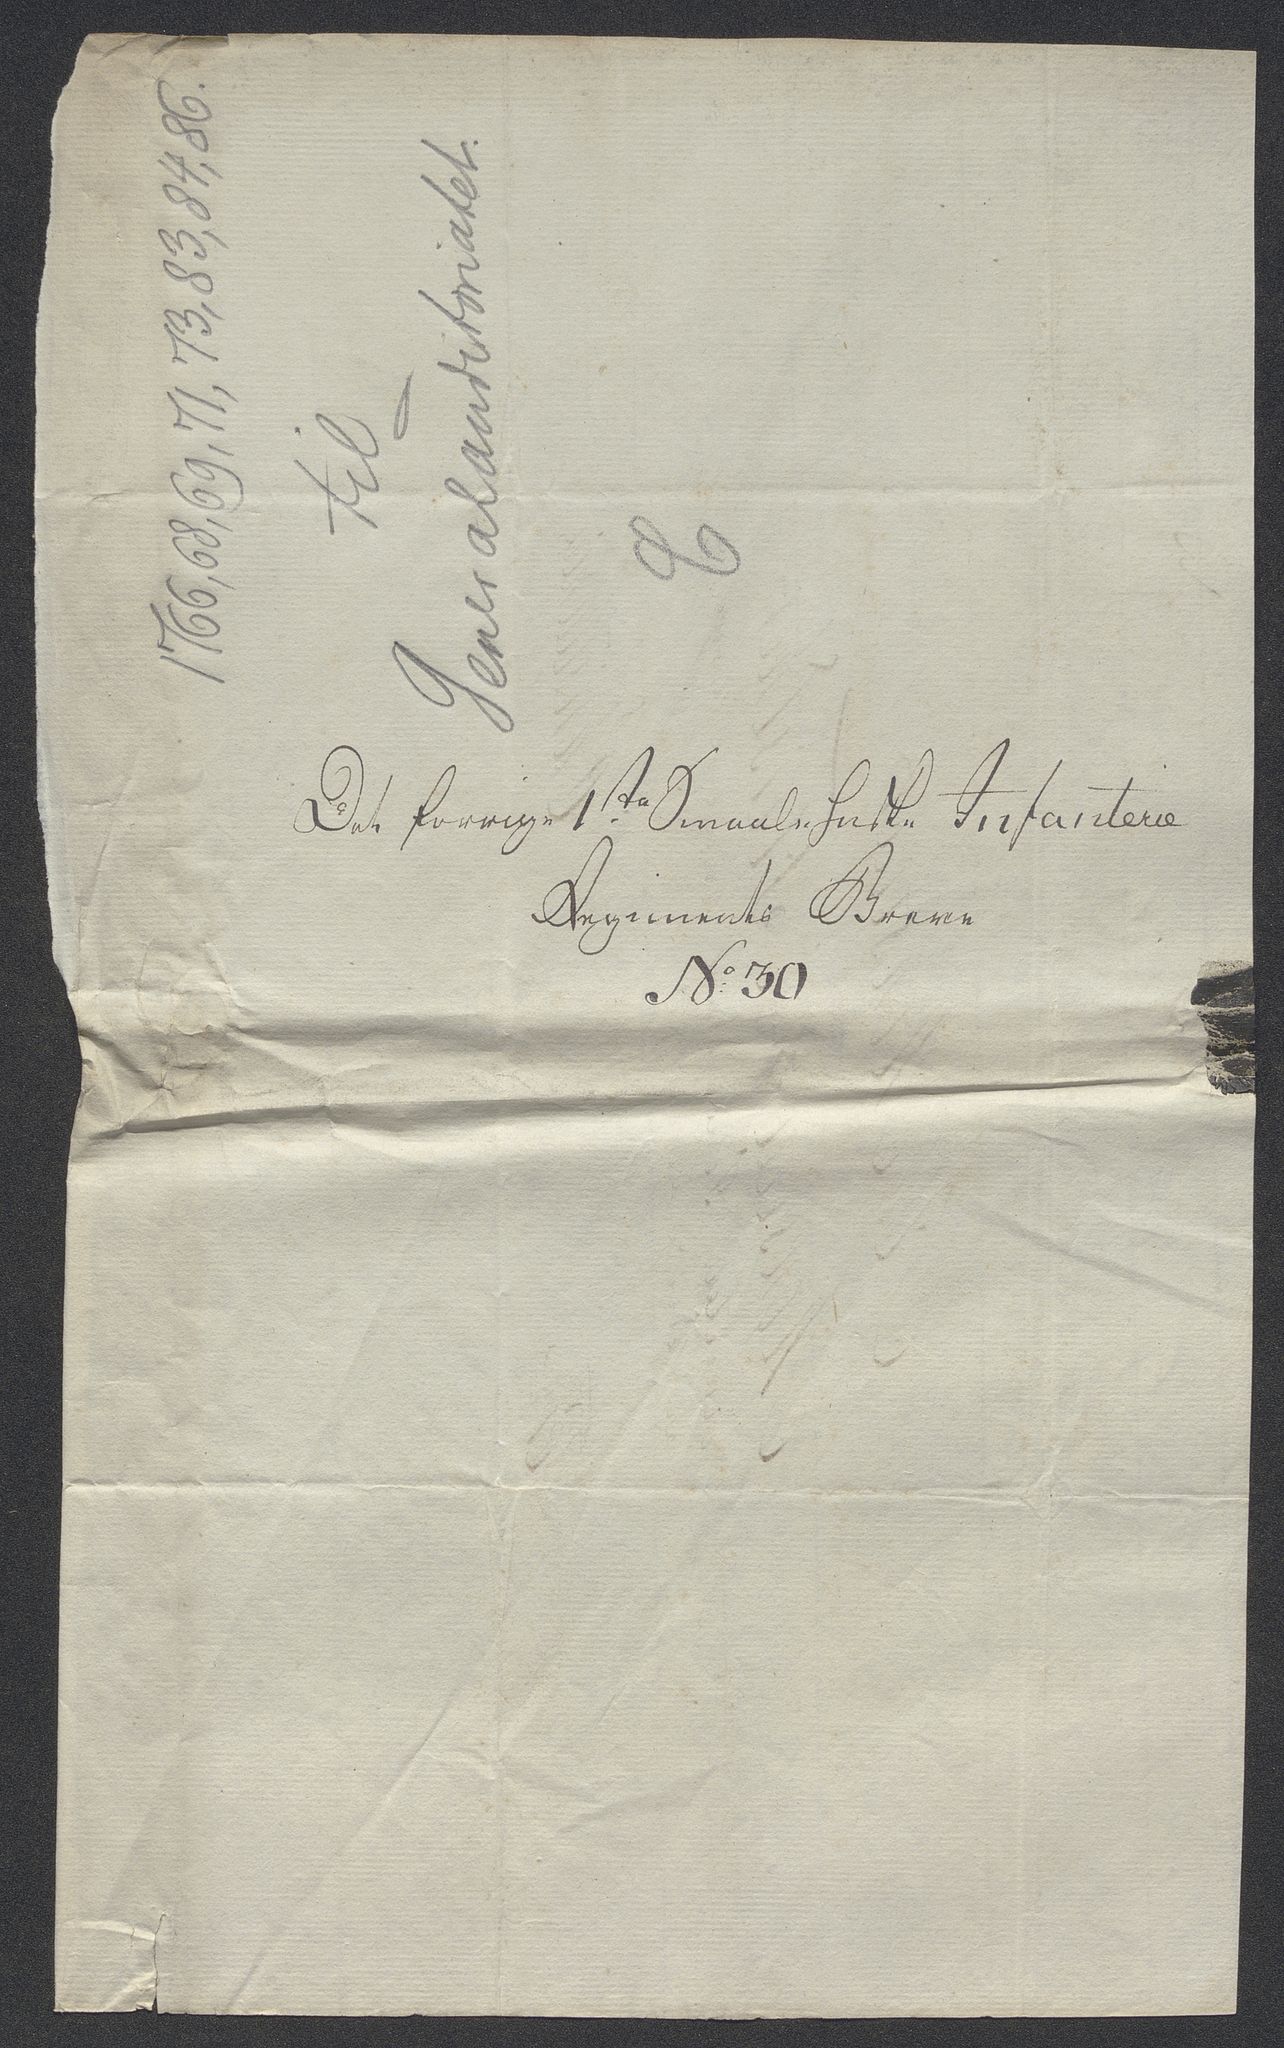 1766, 68, 69, 71, 73, 83, 84, 86.
til
Generalauditoriatet.
Det forrige 1ste Smaalehnske Infanterie
Regiments Breve
No 30